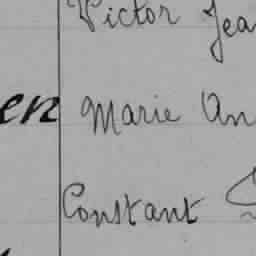 Victor Jea
en Marie An
Constant